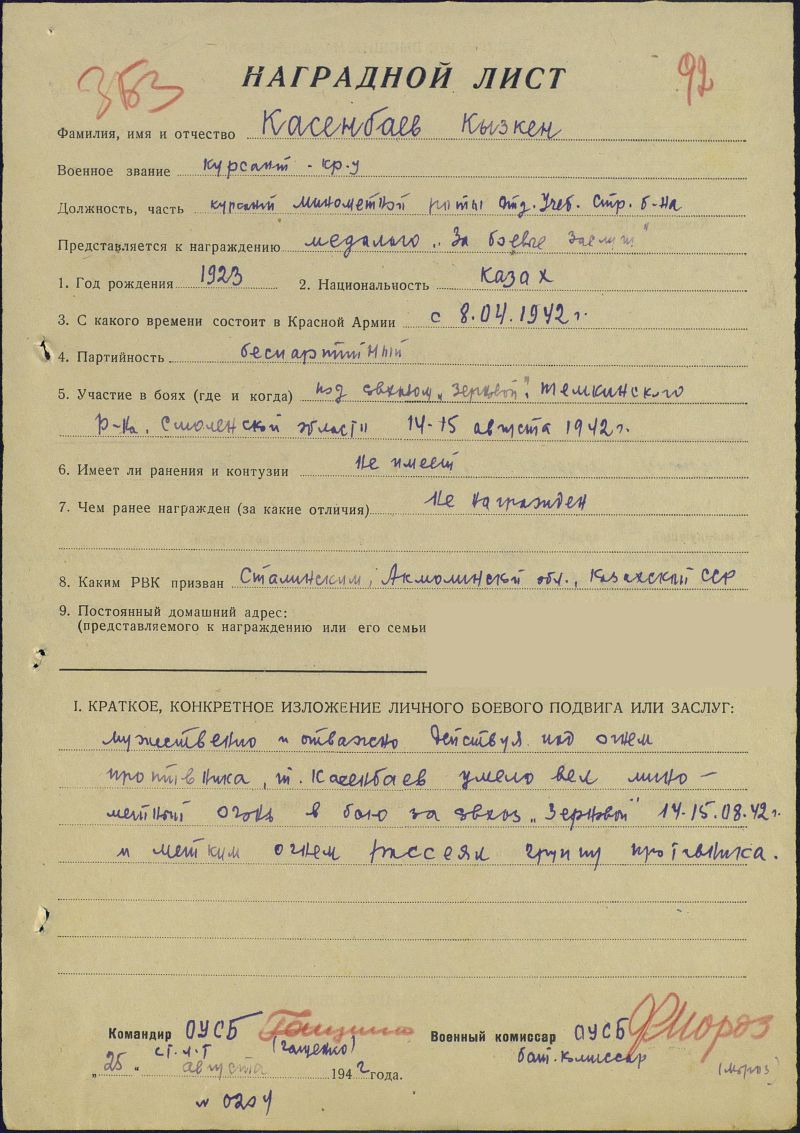 353
92
НАГРАДНОЙ ЛИСТ
Фамилия, имя и отчество Касенбаев Кызкен
Военное звание курсант - кр-у
Должность, часть курсант минометной роты Отд. Учеб. Стр. б-на
Представляется к награждению медалью „За боевые заслуги"
1. Год рождения 1923 2. Национальность казах
3. С какого времени состоит в Красной Армии с 8.04.1942 г.
4. Партийность беспартийный
5. Участие в боях (где и когда) под свхозом „Зерновой", Темкинского
р-на, Смоленской области 14-15 августа 1942 г.
6. Имеет ли ранения и контузии Не имеет
7. Чем ранее награжден (за какие отличия) Не награжден
8. Каким РВК призван Сталинским, Акмолинской обл., Казахский ССР
9. Постоянный домашний адрес:
(представляемого к награждению или его семьи
I. КРАТКОЕ, КОНКРЕТНОЕ ИЗЛОЖЕНИЕ ЛИЧНОГО БОЕВОГО ПОДВИГА ИЛИ ЗАСЛУГ:
мужественно и отважно действуя под огнем
противника, т. Касенбаев умело вел мино-
метный огонь в бою за свхоз „Зерновой" 14-15.08.42 г.
и метким огнем рассеял группу противника.
Командир ОУСБ Военный комиссар ОУСБ Фмороз
ст. л-т (Гащенко) бат. комиссар (мороз)
„25" августа 1942 года.
№ 0204